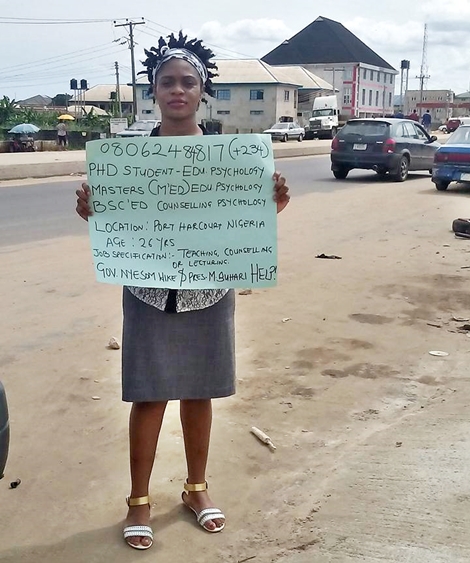 08062484817 (+234)
PHD STUDENT-EDU PSYCHOLOGY
MASTERS (M'ED) EDU PSYCHOLOGY
BSC'ED COUNSELLING PSYCHOLOGY
LOCATION: PORT HARCOURT NIGERIA
AGE: 26 YRS
JOB SPECIFICATION:- TEACHING, COUNSELLING
OR LESTURING.
GOV. NYESOM WIKE $ PRES. M. BUHARI HELP!